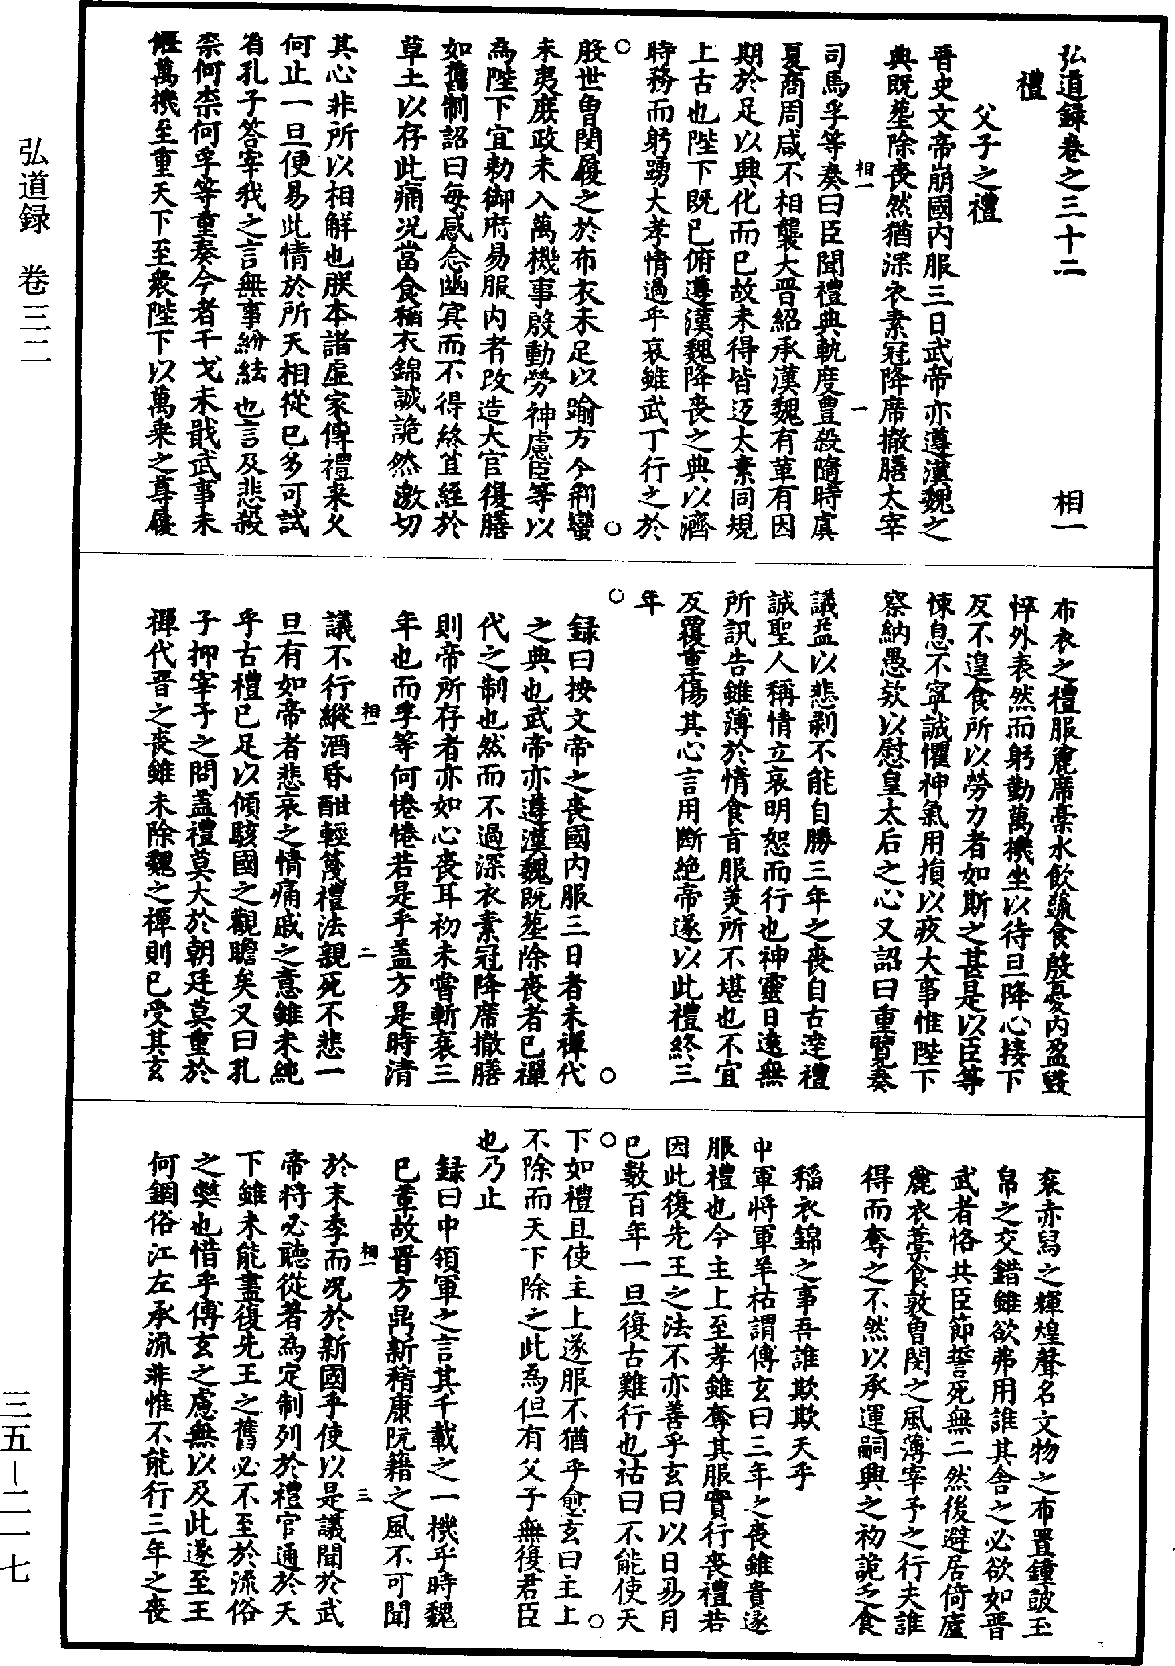 弘道録卷之三十二　相一
禮
父子之禮
晉史文帝崩國內服三日武帝亦遵漢魏之
典既葬除喪然猶深衣素冠降席撤膳太宰
司馬孚等奏曰臣聞禮典軌度豊殺隨時虞
夏商周咸不相襲大晉紹承漢魏有革有因
期於足以興化而已故未得皆返太素同規
上古也陛下既已俯遵漢魏降喪之典以濟
時務而躬蹈大孝情過乎哀雖武丁行之於
殷世曾閔履之於布衣未足以踰方今荊蠻
未夷庶政未入萬機事殷動勞神慮臣等以
為陛下宜勑御府易服內者改造大官復膳
如舊制詔曰每感念幽冥而不得終苴絰於
草土以存此痛况當食稲衣錦誠詭然激切
其心非所以相解也朕本諸生家傳禮來久
何止一旦便易此情於所天相從已多可試
省孔子答宰我之言無事紛紜也言及悲殺
柰何柰何孚等重奏今者干戈未戢武事未
偃萬機至重天下至衆陛下以萬乘之尊履
布衣之禮服麄席藁水飲䟽食殷憂內盈毀
悴外表然而躬勤萬機坐以待旦降心接下
反不遑食所以勞力者如斯之甚是以臣等
悚息不寧誠懼神氣用損以疚大事惟陛下
察納愚欵以慰皇太后之心又詔曰重覽奏
議益以悲剥不能自勝三年之喪自古達禮
誠聖人稱情立哀明恕而行也神靈日遠無
所訊告雖薄於情食㫖服羙所不堪也不宜
反覆重傷其心言用斷絶帝遂以此禮終三
年
録曰按文帝之喪國內服三日者未禪代
之典也武帝亦遵漢魏既葬除喪者已禪
代之制也然而不過深衣素冠降席撤膳
則帝所存者亦如心喪耳初未嘗斬衰三
年也而孚等何惓惓若是乎蓋方是時清
議不行縱酒昏酣輕蔑禮法親死不悲一
旦有如帝者悲哀之情痛戚之意雖未純
乎古禮已足以傾駭國之觀瞻矣又曰孔
子抑宰予之問盖禮莫大於朝廷莫重於
禪代晉之喪雖未除魏之禪則已受其玄
衮赤舄之輝煌聲名文物之布置鐘皷至
帛之交錯雖欲弗用誰其舍之必欲如晉
武者恪共臣節誓死無二然後避居倚廬
麄衣藁食敦曾閔之風薄宰予之行夫誰
得而奪之不然以承運嗣興之初詭乏食
稲衣錦之事吾誰欺欺天乎
中軍將軍羊祜謂傅玄曰三年之喪雖貴遂
服禮也今主上至孝雖奪其服實行喪禮若
因此復先王之法不亦善乎玄曰以日易月
已數百年一旦復古難行也祜曰不能使天
下如禮且使主上遂服不猶乎愈玄曰主上
不除而天下除之此為但有父子無復君臣
也乃止
録曰中領軍之言其千載之一機乎時魏
已革故晉方鼎新稽康阮籍之風不可聞
於末季而况於新國乎使以是議聞於武
帝將必聽從著為定制列於禮官通於天
下雖未能盡復先王之舊必不至於流俗
之獘也惜乎傅玄之慮無以及此遂至王
何錮俗江左承流非惟不能行三年之喪
相一
一
相一
二
相一
三
弘道録　卷三二
三五－二一七